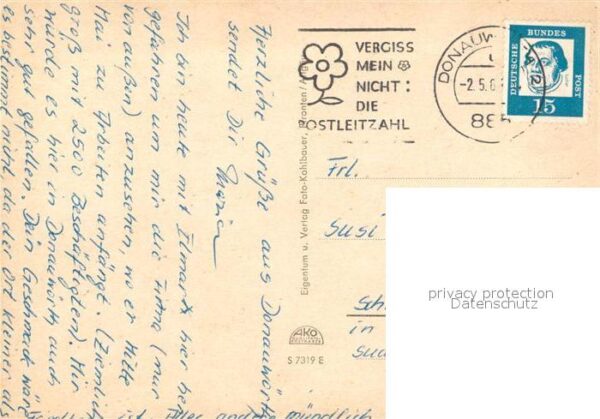 Herzliche Grüße aus Donauwörth
sendet Dir
Maria
Ich bin heute mit Ilmark hier her
gefahren um mir die Firma (nur
von außen) anzusehen, wo er Mitte
Mai zu Arbeiten anfängt. (Ziemlich
groß mit 2500 Beschäftigten). Mir
würde es hier in Donauwörth auch
sehr gut gefallen. Dein Geschmack wäre
es bestimmt nicht, da der Ort kleiner als
ist. Alles andere mündlich
VERGISS
MEIN
NICHT:
DIE
POSTLEITZAHL
DONAUW
-2.5.6
885
DEUTSCHE BUNDES POST
15
Eigentum u. Verlag Foto-Kohlbauer, Pfronten/Allg.
AKO
POSTKARTE
S 7319 E
Frl.
Susi
Sch
in
privacy protection
Datenschutz